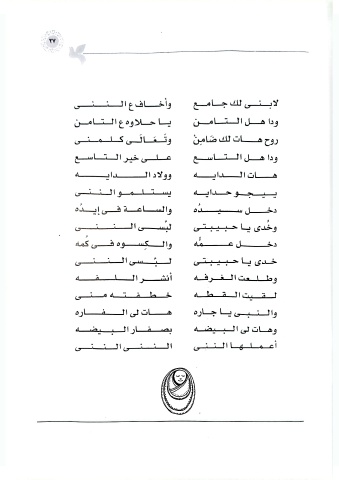 ٢٧
لابنى لك جامع وأخاف ع الننى
ودا هل التامن يا حلاوه ع التامن
روح هات لك ضامن وتعالى كلمنى
ودا هل التاسع على خير التاسع
هات الدايه وولاد الدايه
ييجو حدايه يستلمو الننى
دخل سيده والساعة فى إيده
وخدى يا حبيبتى لبسى الننى
دخل عمه والكسوه فى كمه
خدى يا حبيبتى لبسى الننى
وطلعت الغرفه أنشر اللفه
لقيت القطه خطفته منى
والنبى يا جاره هات لى الفاره
وهات لى البيضه بصفار البيضه
أعملها الننى الننى الننى